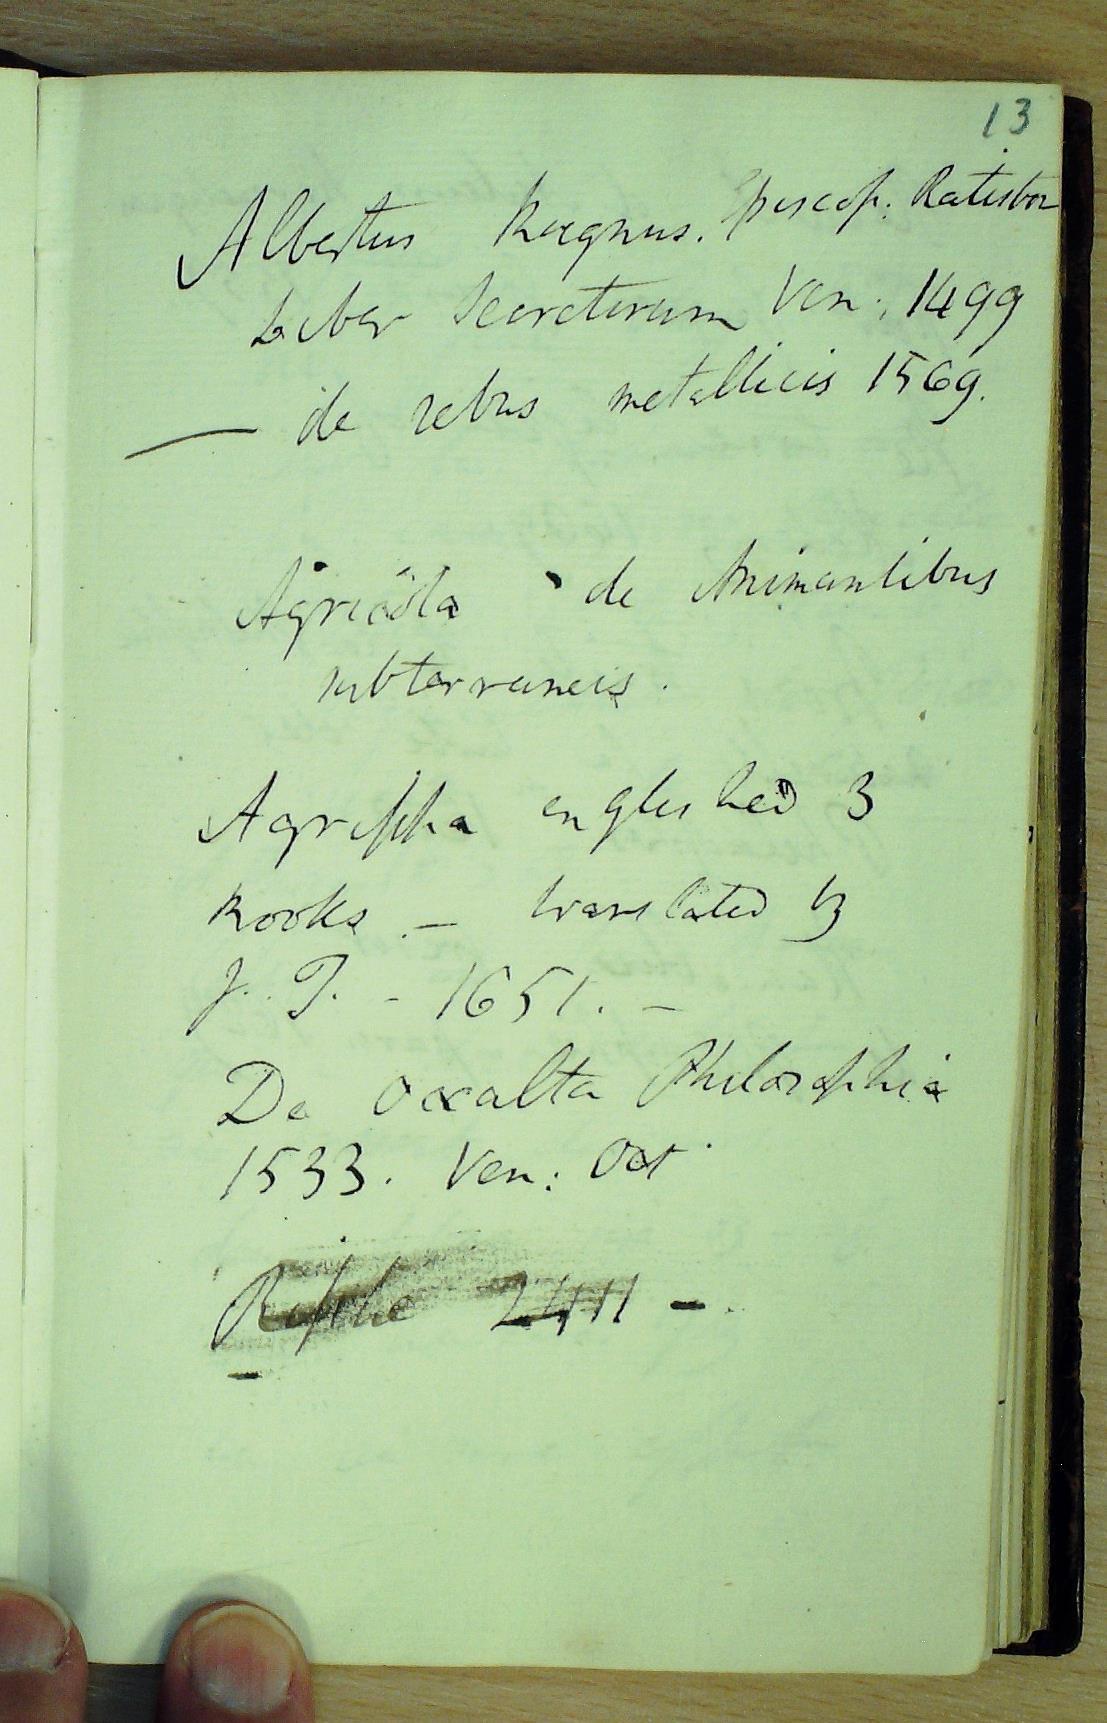 13
Albertus Magnus. Episcop: Ratisbon
Liber Secretorum Ven: 1499
— de rebus metallicis 1569.
Agricola de Animantibus
subterraneis.
Agrippa englished 3
Books — translated by
J. F. - 1651. —
De occulta Philosophia
1533. Ven: Oct.
2411 —.